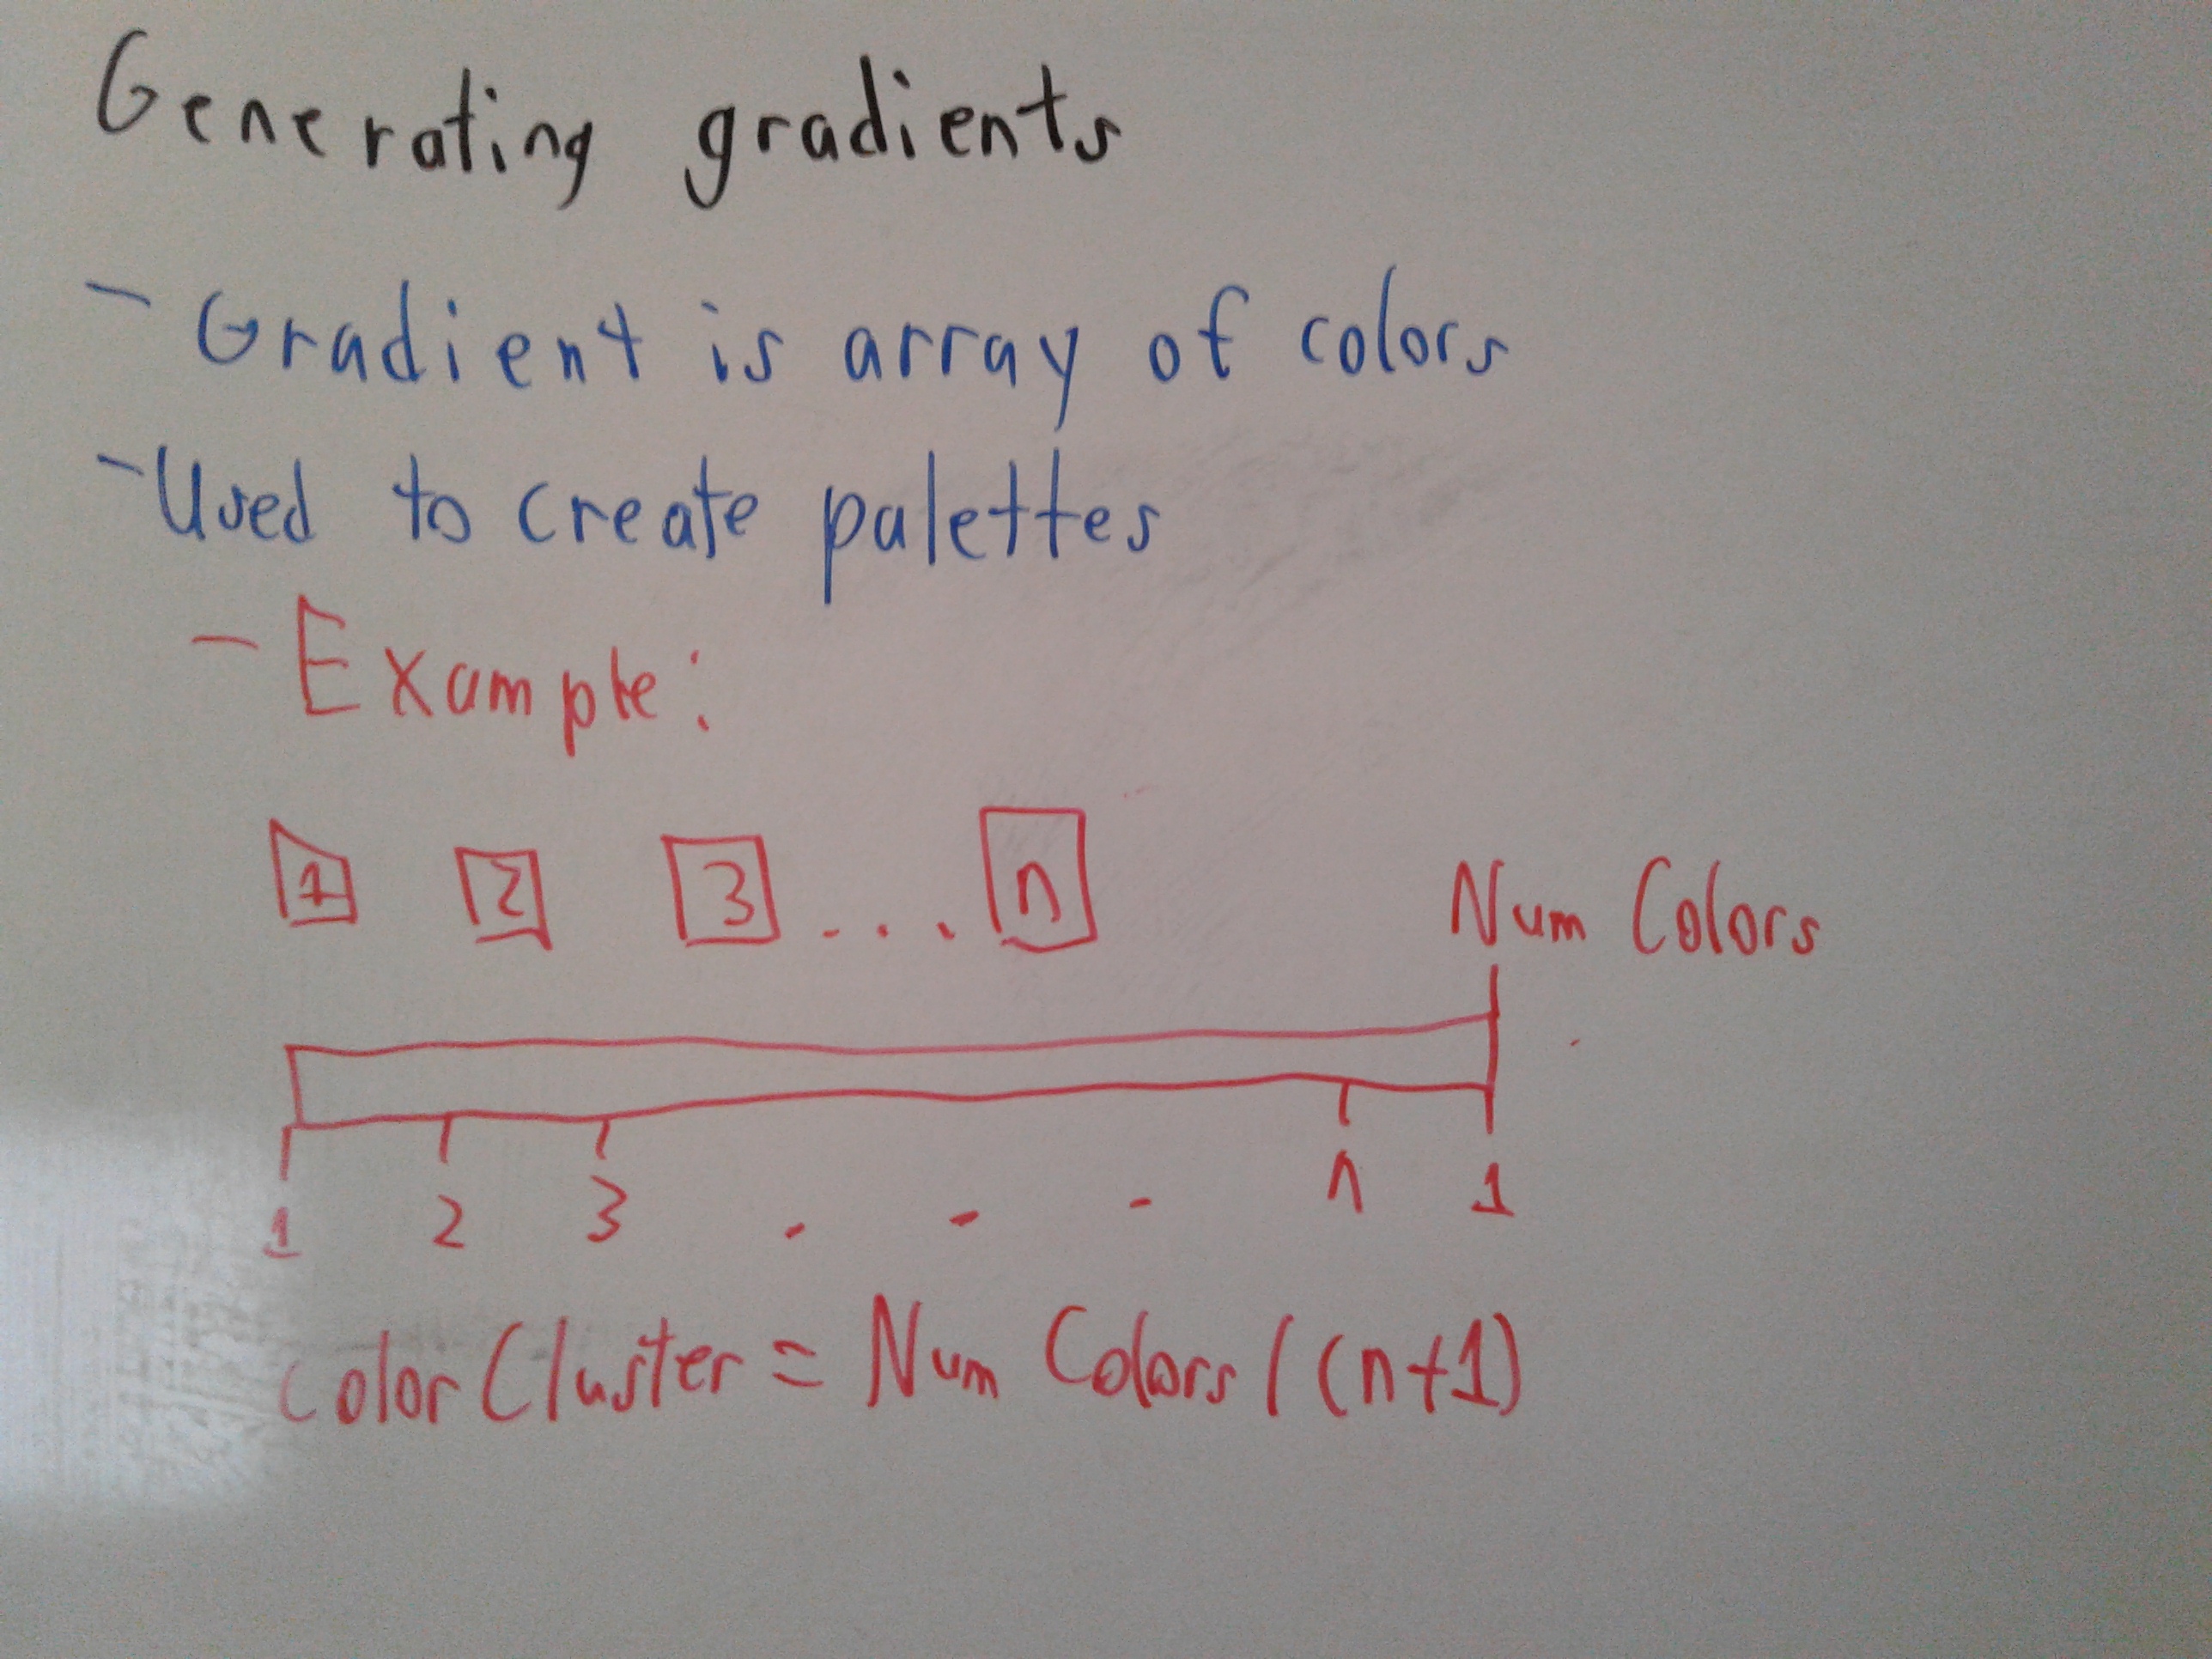 Generating gradients
- Gradient is array of colors
- Used to create palettes
- Example:
1 2 3 ... n
Num Colors
1 2 3 . - - n 1
Color Cluster = Num Colors / (n+1)